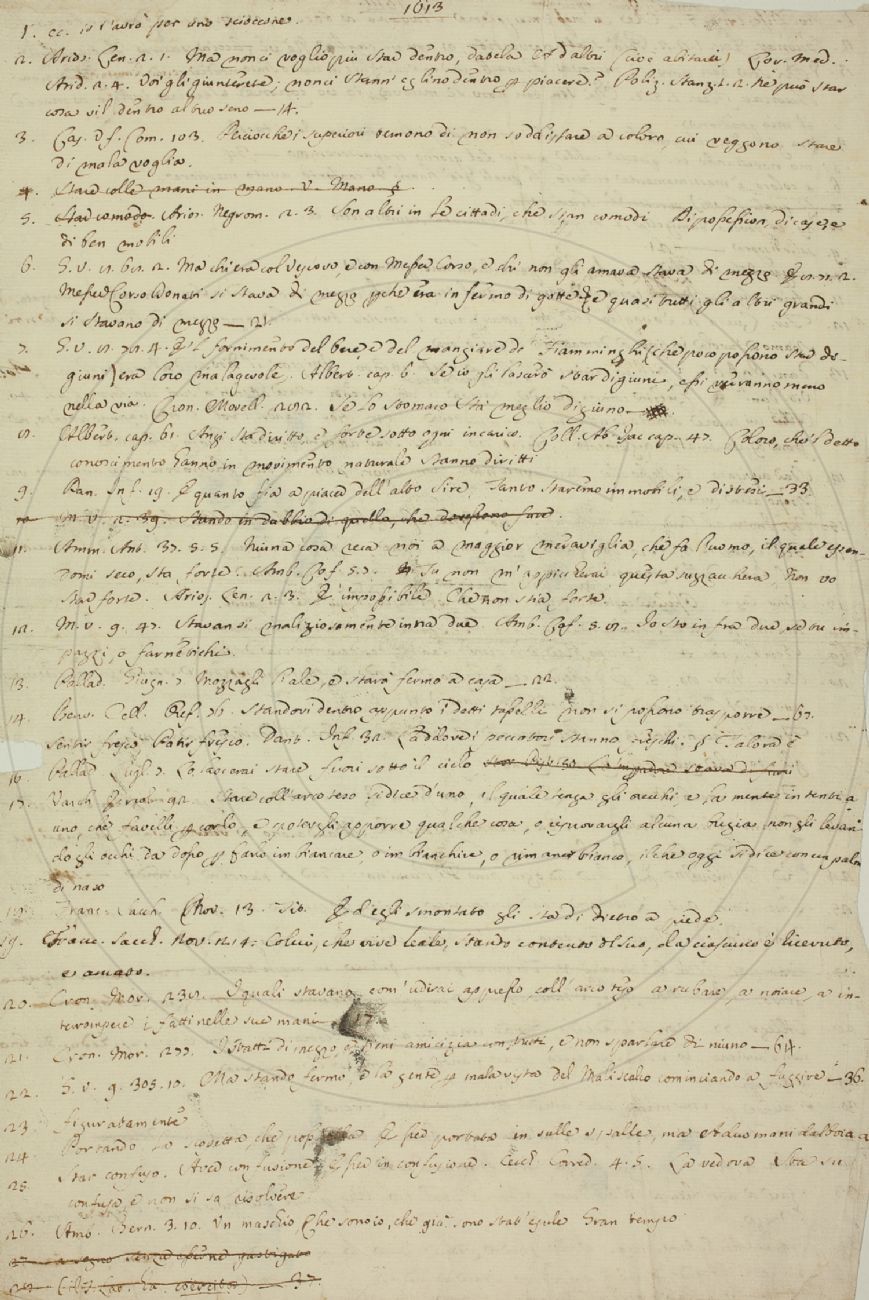 1013
1. ec. io l'avrò per uno scioccone.
2. Arios. Cen. 2. 1. Ma non ci voglio più star dentro, dabela ad altri (cioè abitarci) Gov. Med.
And. 2. 4. Voi gli giunterete; non ci stann' eglino dentro p piacere? Poliz. Stanz. 1. 2. Né può star
cosa vil dentro al suo seno — 14.
3. Cas. Uf. Com. 103. Perciocchè i superiori temono di non soddisfare a coloro, cui veggono stare
di mala voglia.
4. Stare colle mani in mano v. Mano §
5. Star comodo. Arios. Negrom. 2. 3. Son altri in te cittadi, che stan comodi Di possession, di case e
di ben mobili
6. G. V. 2. Ma chi era col vescovo, e con Messer Corso, e chi non gli amava stava di mezzo
Messer Corso Donati si stava di mezzo pchè era infermo di gotte e quasi tutti gli altri grandi
si stavano di mezzo — 21.
7. G. V. 4. E 'l fornimento del bere, e del mangiare de' Fiamminghi (che poco possono star di-
giuni) era loro malagevole. Albert. cap. 6. Se io gli lascerò star digiuni, essi verranno meno
nella via. Cron. Morell. 282. Se lo stomaco sta meglio digiuno
8. Albert. cap. 61. Anzi sta diritto, e forte sotto ogni incarico. Coll. Ab. Isac cap. 47. Coloro, che 'l detto
conoscimento hanno in movimento naturale stanno diritti
9. Dan. Inf. 19. E quanto fia a piacer dell'alto Sire, Tanto staremo immobili, e distesi — 33.
10. M. V. 2. 39. Stando in dubbio di quello, che dovessono fare.
11. Amm. Ant. 37. 5. 5. Niuna cosa reca noi a maggior meraviglia, che fa l'uomo, il quale essen-
domi seco, sta forte. Amb. Cof. 5. 7. Tu non m'appiccherai questa suzzacchera, Non vo'
star forte. Arios. Cen. 2. 3. È impossibile Che non stia forte.
12. M. V. 9. 47. Stavansi maliziosamente intra due. Amb. Cof. 5. Io sto in fra due, se tu im-
pazzi, o farnetichi.
13. Pallad. Giugn. 7 Mozzagli l'ale, e starà fermo a casa — 22.
14. Benv. Cell. Oref. 76. Standovi dentro appunto i detti tasselli non si possono trasporre — 67.
Sentir fresco Patir fresco. Dant. Inf. 32. Là dove i peccatori stanno freschi. § Talora è
16. Pallad. Lugl. 7. Lascerai stare fuori sotto il cielo
17. Varch. Ercol. 92. Stare coll'arco teso si dice d'uno, il quale tenga gli occhi, e la mente intenti a
uno, che favelli p corlo, e potergli apporre qualche cosa, o riprovargli alcuna bugia, non gli levan-
do gli occhi da dosso p farlo imbiancare, o imbianchire, o rimaner bianco, il che oggi si dice con un palmo
di naso
18. Franc. Sacch. Nov. 13. Ed egli smontato gli sta di dietro a piede.
19. Franc. Sacch. Nov. 214. Colui, che vive leale, stando contento del suo, da ciascuno è ricevuto,
e amato.
20. Cron. Mor. I quali stavano, com'udirai appresso, coll'arco teso a rubare, a noiare, a in-
terrompere i fatti nelle sue mani — 17.
21. Cron. Mor. 277. Istatti di mezzo, e tieni amicizia con tutti, e non sparlare di niuno — 64.
22. G. V. 9. 305. 10. Ma stando fermo, e la gente p mala vista del Maliscalco cominciando a fuggire — 36.
23. figuratamente
24. Portando la cosetta, che E pied portata in sulle spalle, ma a duo mani dabocca a
25. Star confuso. Aver confusione Esser in confusione. Cecch. Corred. 4. 5. La vedova Sta su
confusa, e non si sa risolvere
26. Amo. Bern. 3. 10. Un maschio, che son io, che già sono stat' esule Gran tempo
27. a segno senza essere gastigato
37.